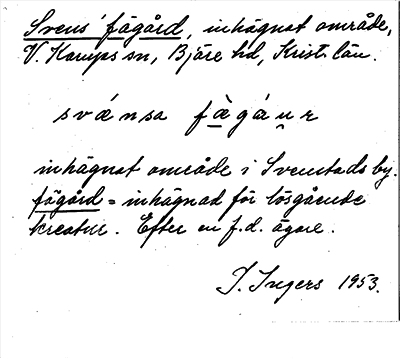 Svens' fägård, inhägnat område,
V. Karups sn, Bjäre hd, Krist. län.
svánsa fàgáu̯r
inhägnat område i Svenstads by.
fägård = inhägnad för lösgående
kreatur. Efter en f.d. ägare.
I. Ingers 1953.